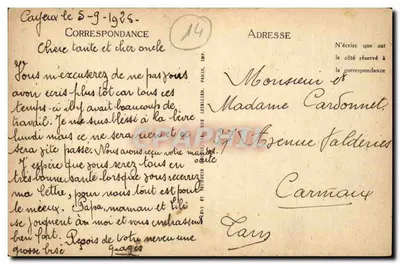 Cayeux le 5-9-1925-
14
CORRESPONDANCE
ADRESSE
Chere tante et cher oncle
N'écrire que sur
le côté réservé à
la correspondance
Vous m'excuserez de ne pas vous
avoir ecris plus tot car tous ces
temps-ci il y avait beaucoup de
travail. Je me suis blessé à la
lundi mais ce ne sera rien et se
sera vite passé. Nous avons recu votre
carte
J'espère que vous serez tous en
tres bonne santé lorsque vous recevrez
ma lettre, pour nous tout est pour
le mieux. Papa, maman et
se joignent à moi et vous embrassent
bien fort. Reçois de Votre neveu une
grosse bisé
Monsieur et
Madame Cardonnel
Avenue
Carmaux
Tarn
CPARAMA